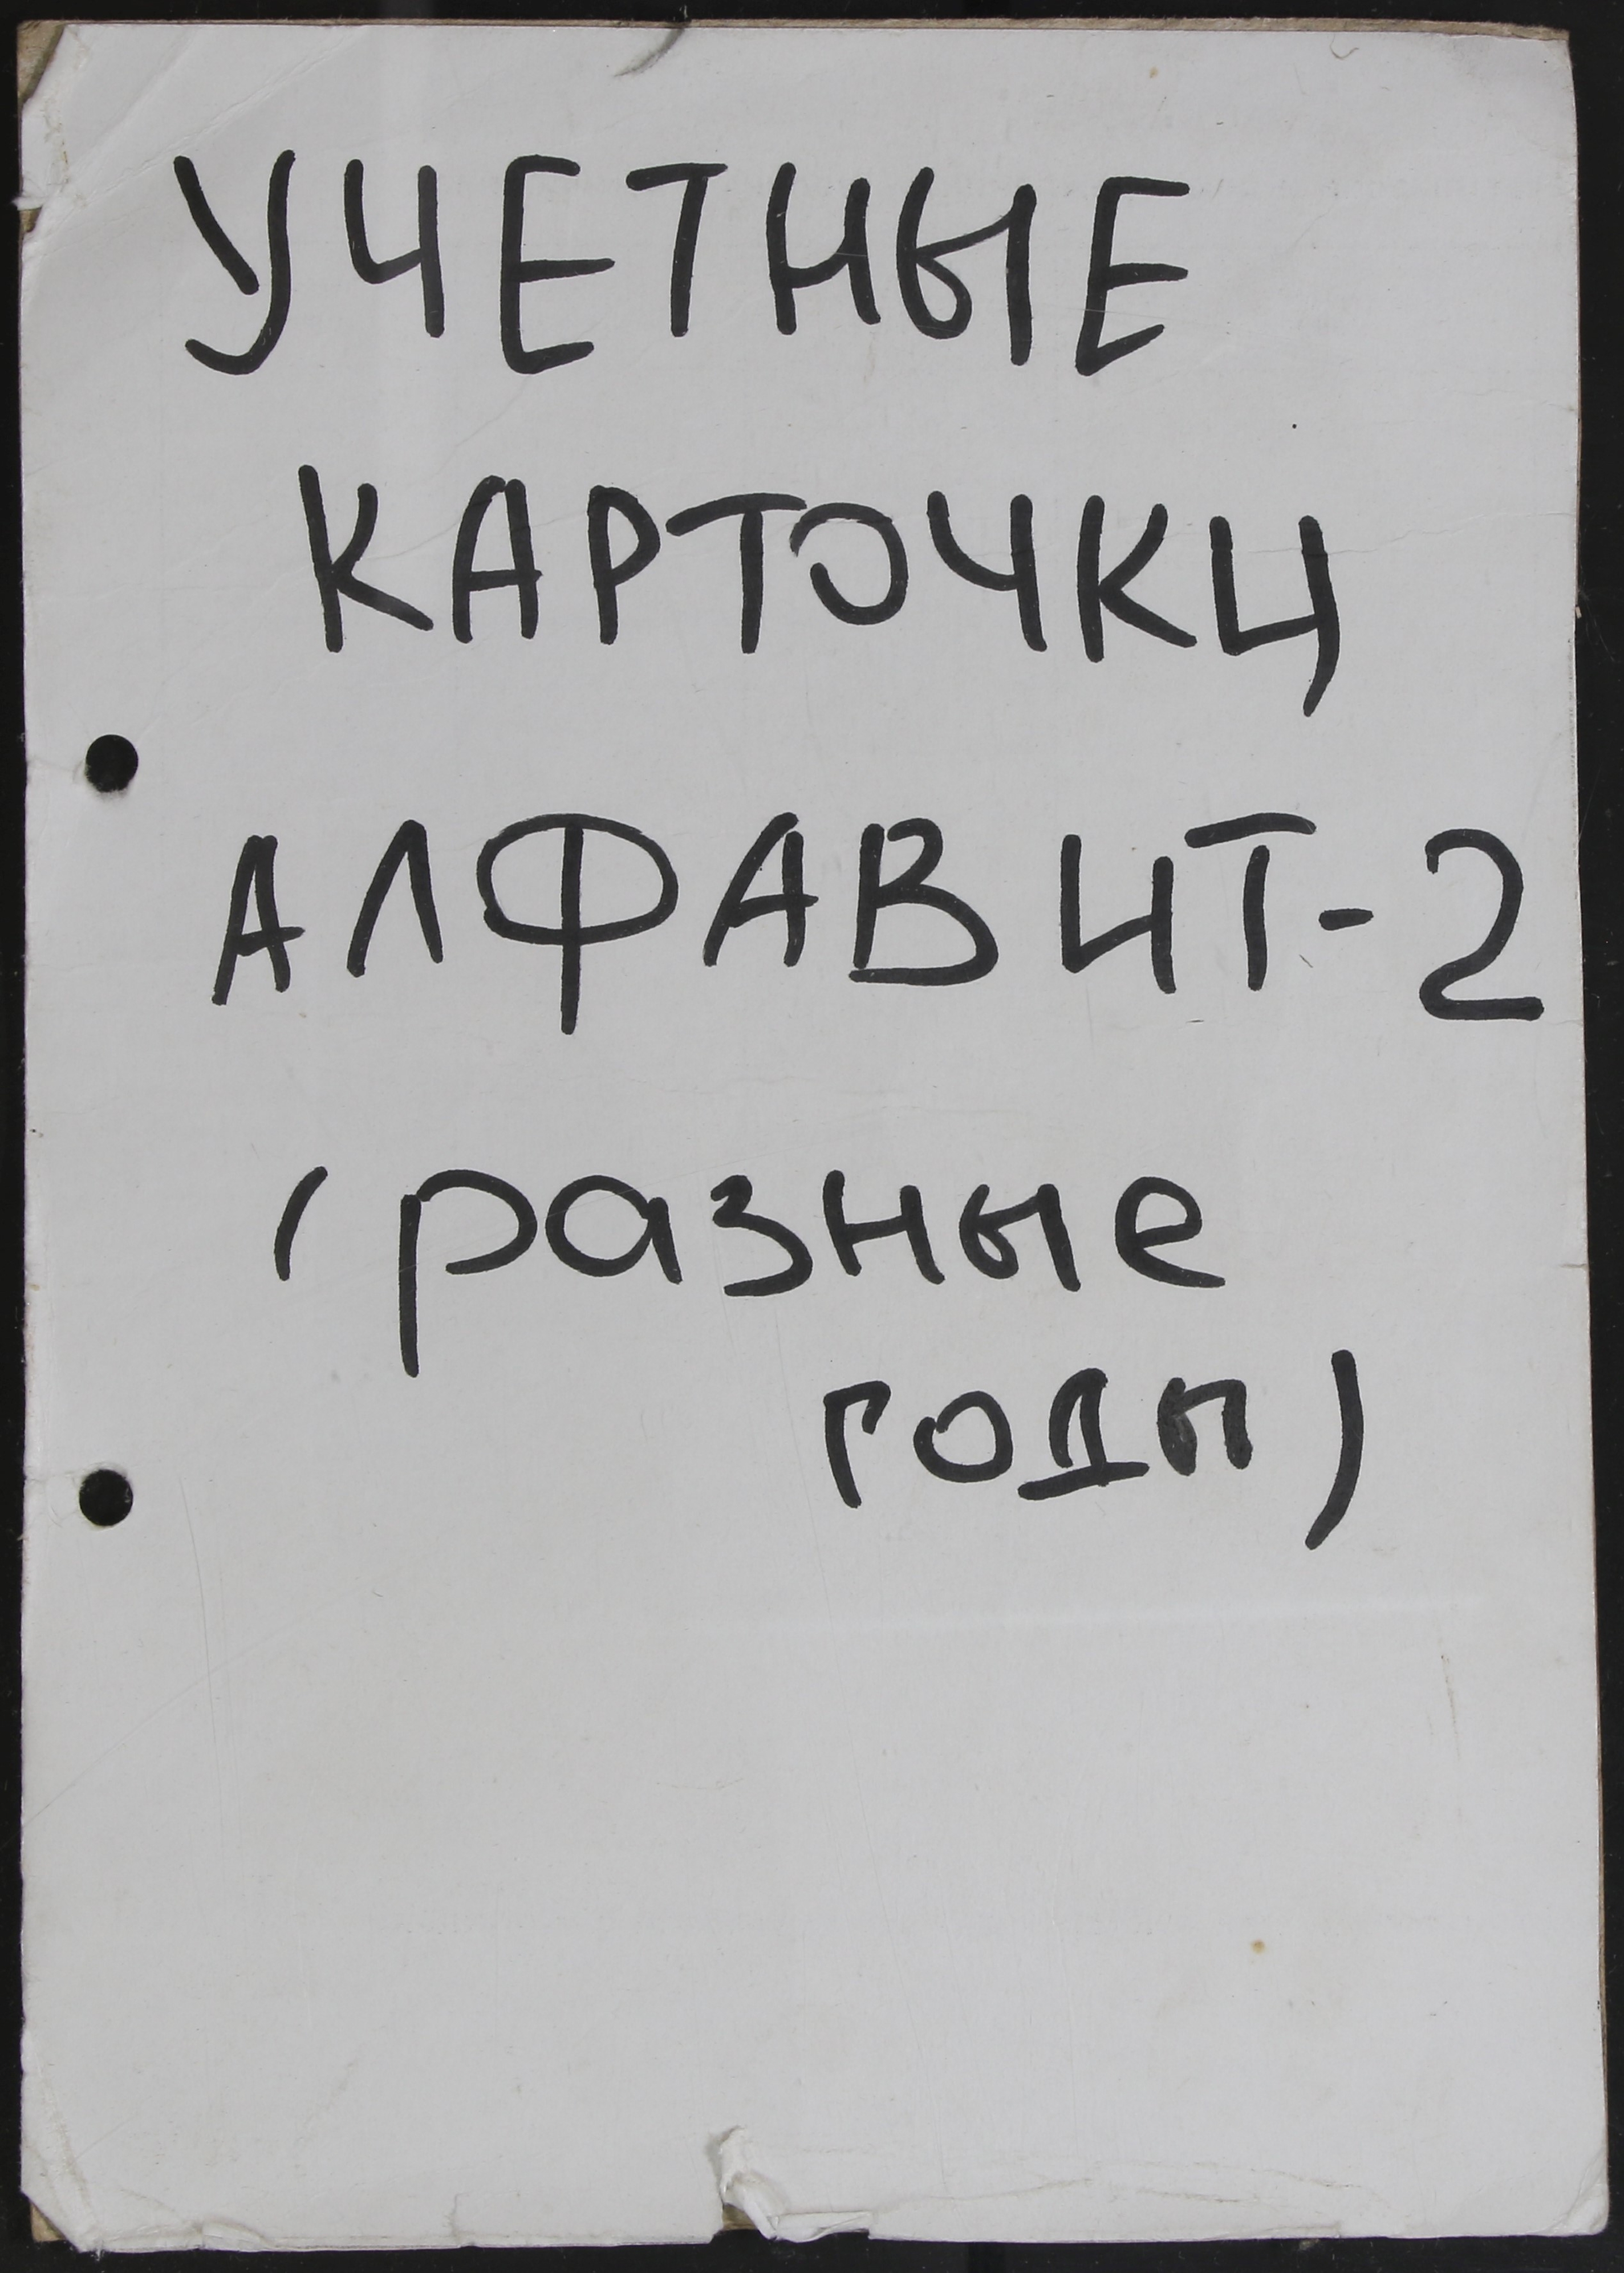 УЧЕТНЫЕ
КАРТОЧКИ
АЛФАВИТ-2
(разные
годы)